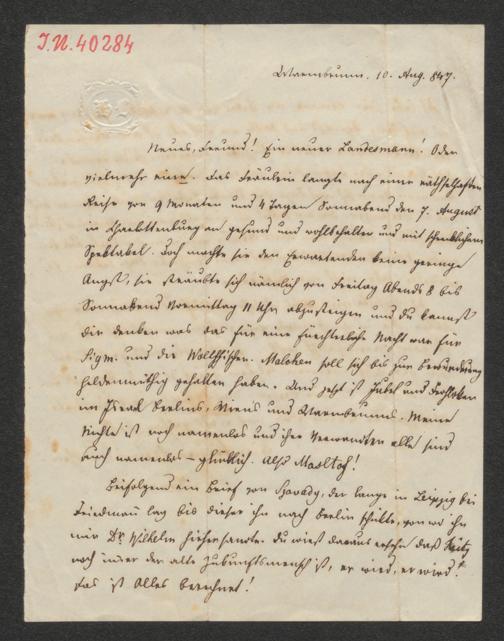 I.N. 40284
Warmbrunn. 10. Aug. 847.
Neues, Freund! Ein neuer Landesmann! Oder
vielmehr eine. Das Fräulein langte nach einer räthselhaften
Reise von 9 Monaten und 4 Tagen Sonnabend den 7. August
in Charlottenburg an gesund und wohlbehalten und mit schrecklichem
Spektakel. Doch machte sie den Erwartenden keine geringe
Angst, sie sträubte sich nämlich von Freitag Abends 8 bis
Sonnabend Vormittag 11 Uhr abzusteigen und du kannst
dir denken was das für eine fürchterliche Nacht war für
Sigm. und die Wollfischen. Malchen soll sich bis zur Bewunderung
heldenmüthig gehalten haben. Und jetzt ist Jubel und Frohlocken
im Israel Berlins, Wiens und Warmbrunns. Meine
Nichte ist noch namenlos und ihre Verwandten alle sind
auch namenlos – glücklich. Also Masltof!
Beifolgend ein Brief von Szavady, der lange in Leipzig bei
Friedmann lag bis dieser ihn nach Berlin schickte, von wo ihn
mir Dr. Wilhelm hiehersandte. Du wirst daraus ersehn daß
noch immer der alte Zukunftsmensch ist, er wird, er wird!
Das ist Alles berechnet!